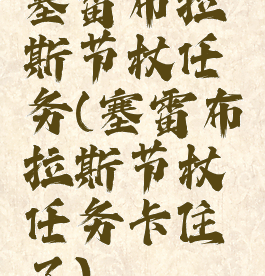 塞雷布拉
斯节杖任
务(塞雷布
拉斯节杖
任务卡住
了)